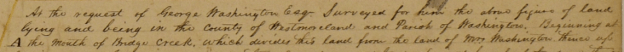 As the request of George Washington Esqr. Surveyed for him the above figure of land
lying and being in the County of Westmoreland and Parish of Washington, Beginning at
A the Mouth of Bridge Creek, which divides his land from the land of Mrs. Washington thence up